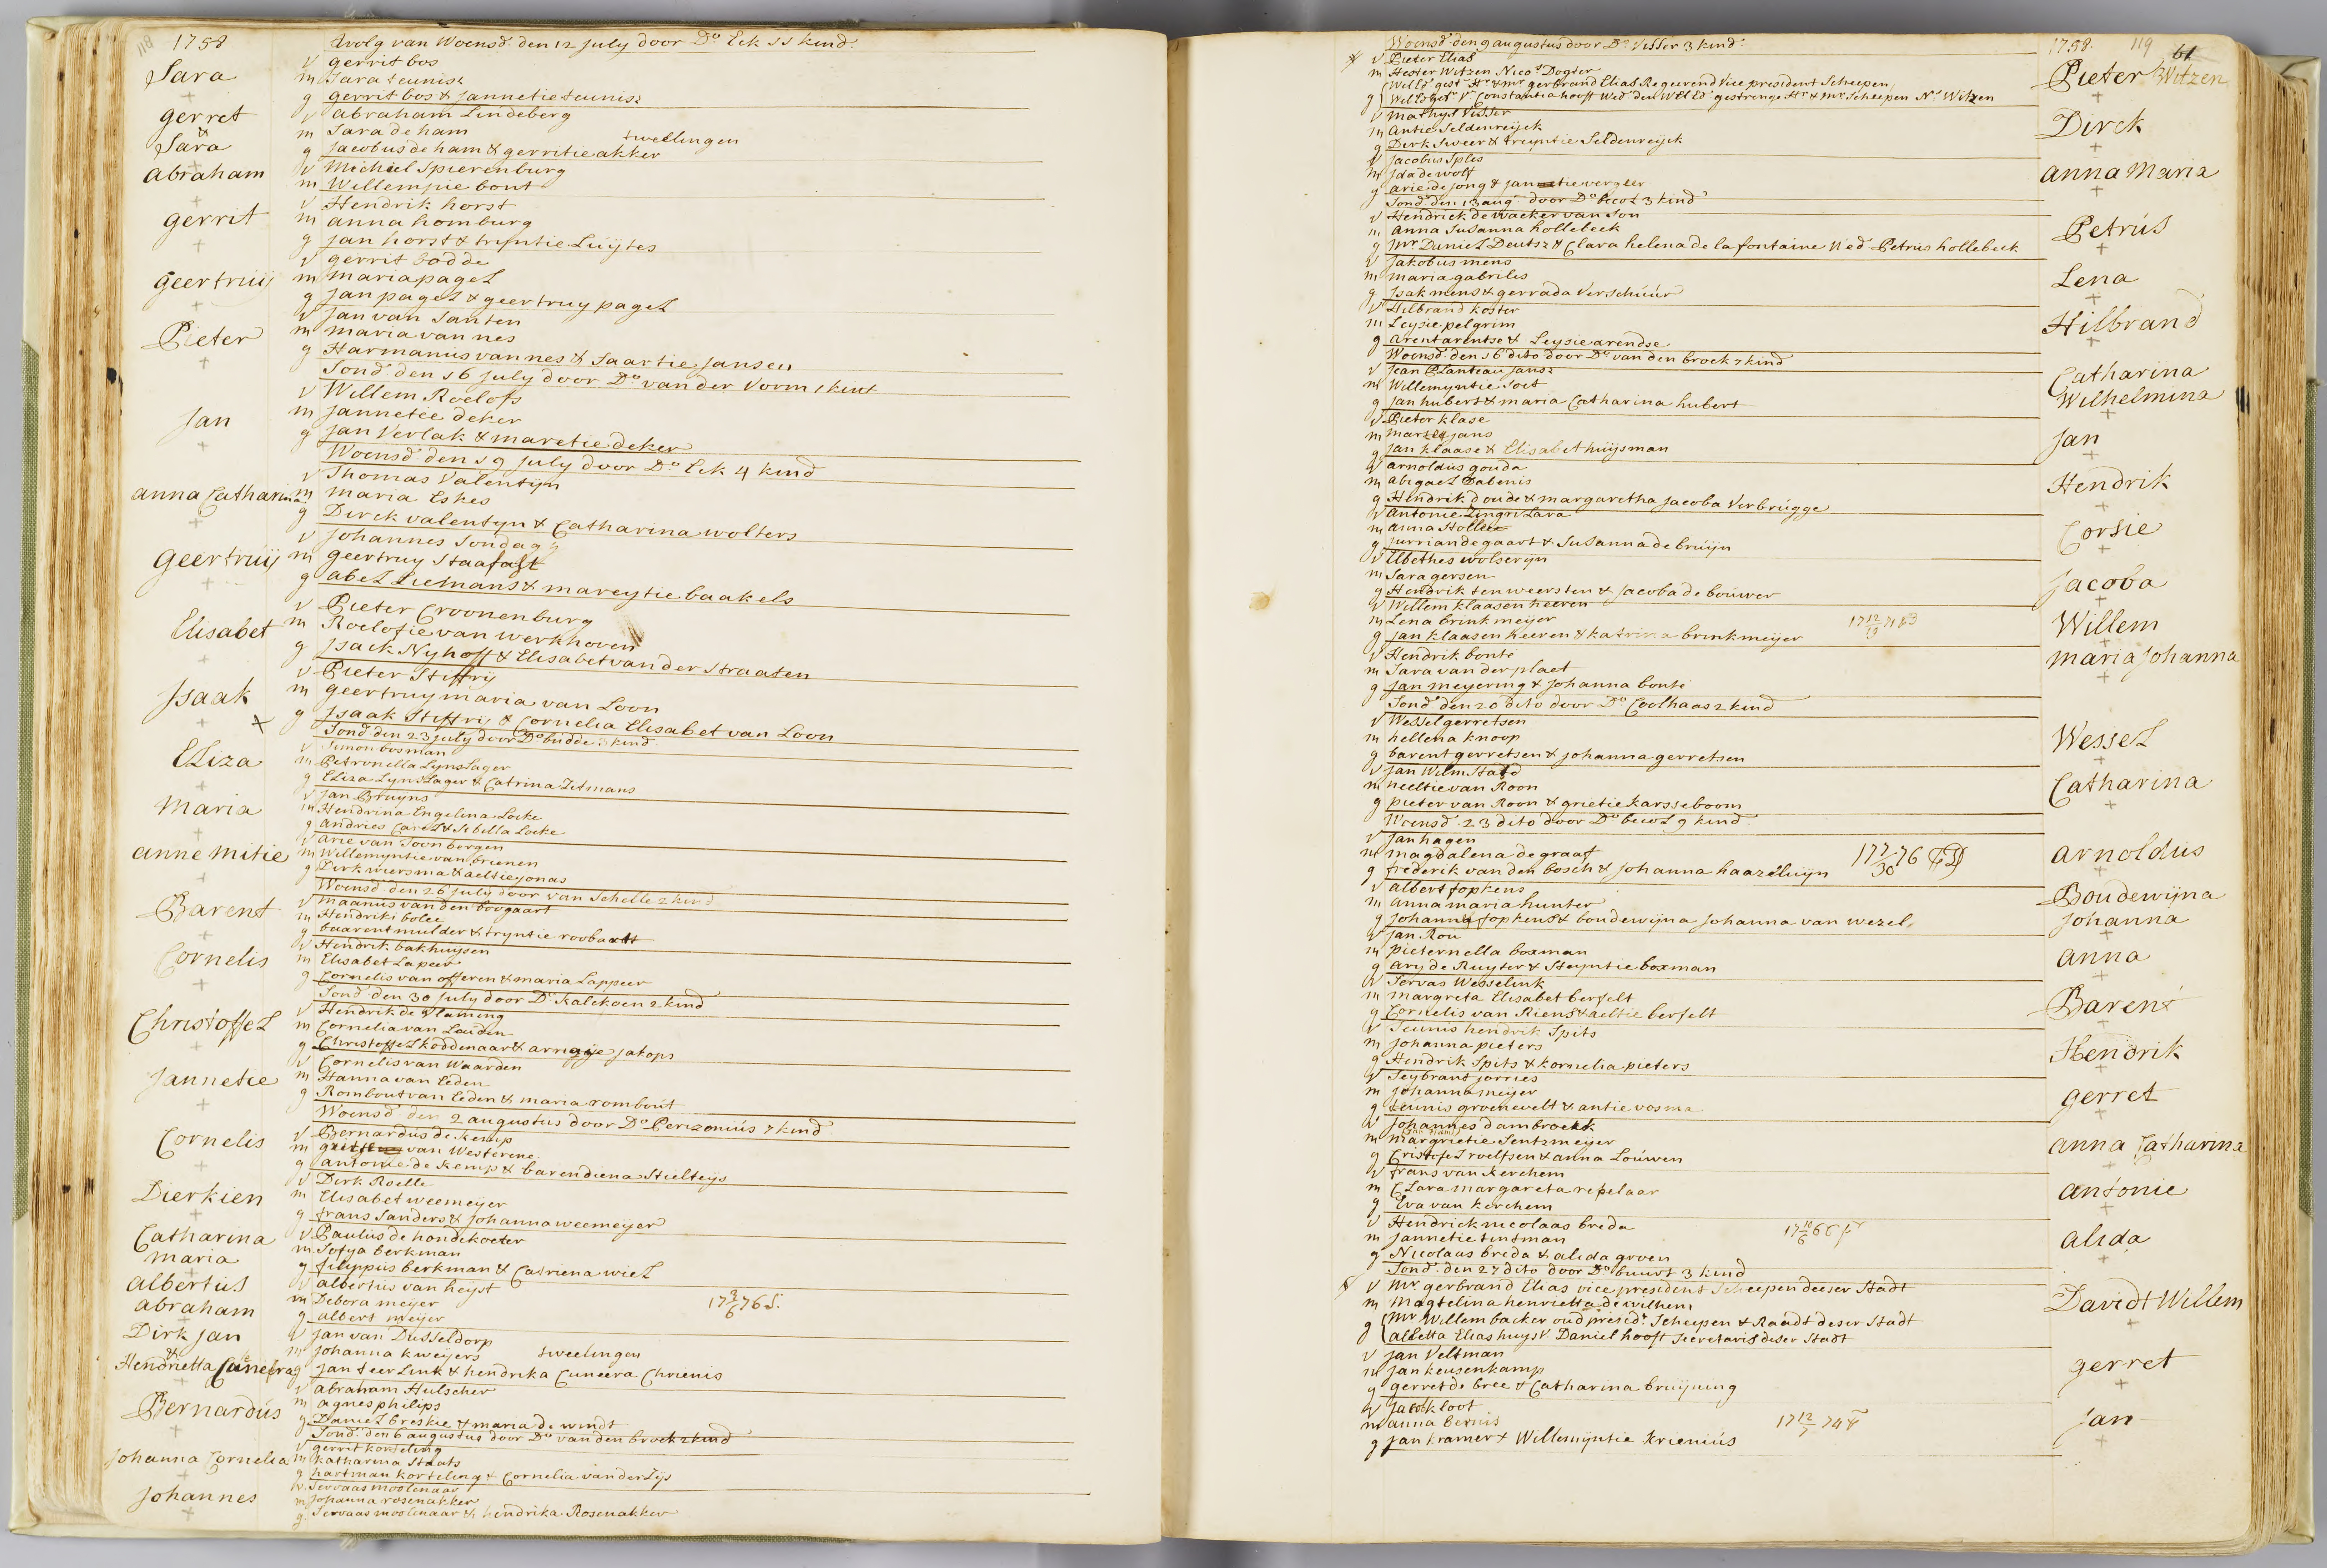 118 1758 Avolg van Woensd. den 12 July door Do. Eck 11 kind.
Sara
v gerrit bos
m Sara teunisz
g gerrit bos & Jannetie teunisz
gerret & Sara
v abraham Lindeberg
m Sara de ham tweelingen
g Jacobus de ham & gerritie akker
abraham
v Michiel Spierenburg
m Willempie bont
gerrit
v Hendrik horst
m anna homburg
g Jan horst & tryntie Lúÿtes
geertruij
v gerrit bodde
m maria pagel
g Jan pagel & geertruy pagel
Pieter
v Jan van Santen
m maria van nes
g Harmanus van nes & Saartie Jansen
Sond. den 16 July door Do. van der Vorm 1 kint
Jan
v Willem Roelofs
m Jannetee deker
g Jan Verlak & maretie deker
Woensd. den 19 July door Do. Eck 4 kind
anna Catharina
v Thomas Valentijn
m maria Eskes
g Dirck valentyn & Catharina wolters
geertruij
v Johannes Sondag
m geertruy Staafast
g abel Lielmans & mareytie baakels
Elisabet
v Pieter Croonenburg
m Roelofie van werkhoven
g Isack Nyhoff & Elisabet van der Straaten
Isaak
v Pieter Stiffrij
m geertruy maria van Loon
g Isaak Stiffrij & Cornelia Elisabet van Loon
Sond. den 23 july door Do. budde 3 kind.
Eliza
v Simon bosman
m Petronella LynsLager
g Eliza LynsLager & Catrina Zitmans
maria
v Jan Bruyns
m Hendrina Engelina Locke
g andries Carel & Sibella Locke
anne mitie
v arie van Toornborgen
m Willemyntie van brienen
g Dirk wiersma & aeltie jonas
Woensd. den 26 july door van Schelle 2 kind
Barent
v maanus van den boogaart
m Hendriki bolee
g baarent mulder & tryntie roobartt
Cornelis
v Hendrik bakhuysen
m Elisabet Lapeer
g Cornelis van offeren & maria Lappeer
Sond. den 30 july door Do. Kalckoen 2 kind
Christoffel
v Hendrik de Vlaming
m Cornelia van Leuden
g Christoffel koddenaar & arrigje jakops
Jannetie
v Cornelis van Waarden
m Hanna van Eeden
g Rombout van Eeden & maria rombout
Woensd. den 2 augustus door Do. Perizonius 7 kind
Cornelis
v Bernardus de kemp
m van Westerene
g antonie de kemp & barendiena Stielteys
Dierkien
v Dirk Roelle
m Elisabet weemeijer
g frans Sanders & Johanna weemeijer
Catharina maria
v Paulus de hondekoeter
m Sofya berkman
g filippus berkman & Catriena wiel
albertus abraham
v albertus van heyst
m Debora meyer
g albert meyer
Dirk Jan & Hendrietta Cunera
v Jan van Dusseldorp
m Johanna kweijers tweelingen
g Jan teerLink & hendrika Cuneera Chrienis
Bernardús
v abraham Hulscher
m agnes philips
g Daniel breskie & maria de windt
Sond. den 6 augustus door Do. van den broek 2 kind
Johanna Cornelia
v gerrit korteling
m katharina Staats
g hartman korteling & Cornelia van der Zys
Johannes
v Servaas moolenaar
m Johanna rosenakker
g Servaas moolenaar & hendrika Rosenakker
Woensd. den 9 augustus door Do. Visser 3 kind. 1758. 119 61
Pieter Witzen
v Pieter Elias
m Hester Witzen Nicos Dogter
g Will'd gest. Hr. & mr. gerbrand Elias Regeerend Vice president Scheepen
Constantia hooft Wed. den WelEd. gestrenge Hr. & mr. Scheepen Ns. Witzen
Dirck
v mathys Visser
m antie Seldenreijck
g Dirk Sweer & tryntie Seldenreyck
anna Maria
v Jacobus Splis
m Ida de wolf
g arie de jong & jannetie vergeer
Sond. den 13 aug. door Do. becol 3 kind
Petrús
v Hendrick de wacker van Son
m anna Susanna hollebeek
g mr. Daniel Deutsz & Clara helena de la fontaine Wed. Petrus hollebeek
Lena
v Jakobus mens
m maria gabriles
g Isak mens & gerrada Verschúúr
Hilbrand
v Hilbrand koster
m Leysie pelgrim
g arent arentse & Leysie arendse
Woensd. den 16 dito door Do. van den broek 7 kind
Catharina Wilhelmina
v Jean Planteau Jansz
m Willemyntie Soet
g Jan hubert & maria Catharina hubert
Jan
v Pieter klase
m jans
g Jan klaase & Elisabet huijsman
Hendrik
v arnoldus gouda
m abigael Babenis
g Hendrik doude & margaretha Jacoba Verbrúgge
Corsie
v antonie ZingriLara
m anna Hollee
g jurrian de gaart & Susanna de bruijn
Jacoba
v Elbethes wolserijn
m Sara gersen
g Hendrik ten weersten & Jacoba de bouwer
Willem
v Willem klaasen heeren
m Lena brinkmeijer
g Jan klaasen heeren & katrina brinkmeijer
maria Johanna
v Hendrik bonte
m Sara van der plaet
g Jan meyering & Johanna bonte
Sond. den 20 dito door Do. Coolhaas 2 kind
Wessel
v Wessel gerretsen
m hellena knoop
g barent gerretsen & johanna gerretsen
Catharina
v Jan Wilm Stadd
m neeltie van Roon
g pieter van Roon & grietie karsseboom
Woensd. 23 dito door Do. becol 9 kind
arnoldus
v Jan hagen
m magdalena de graaf
g frederik van den bosch & Johanna haazeluijn
Boudewijna Johanna
v albert fopkens
m anna maria hunter
g Johannes fopkens & boudewijna Johanna van wezel
anna
v Jan Rou
m pieternella boxman
g arij de Ruyter & Steyntie boxman
Barent
v Servas Wesselink
m margreta Elisabet berfelt
g Cornelis van Riens & aeltie berfelt
Hendrik
v Teunis hendrik Spits
m Johanna pieters
g Hendrik Spits & kornelia pieters
gerret
v Seybrant jorries
m Johanna meijer
g teunis groenevelt & antie vosma
anna Catharina
v Johannes dambroekk
m margrietie Sentzmeyer
g Cristofel roelfsen & anna Louwen
antonie
v frans van kerchem
m Clara margareta repelaar
g Eva van kerchem
alida
v Hendrick nicolaas breda
m Jannetie tintman
g Nicolaas breda & alida groen
Sond. den 27 dito door Do. buurt 3 kind
Davidt Willem
v mr. gerbrand Elias vice president Scheepen deeser Stadt
m magtelina henrietta de wilhem
g mr. Willem backer oud presidt. Scheepen & Raadt deser Stadt
albetta Elias huysv. Daniel hooft secretaris deser Stadt
gerret
v Jan Veltman
m Jan keusenkamp
g gerret de bree & Catharina bruijning
Jan
v Jacob kloot
m anna bernis
g Jan kramer & Willemijntie krieniús